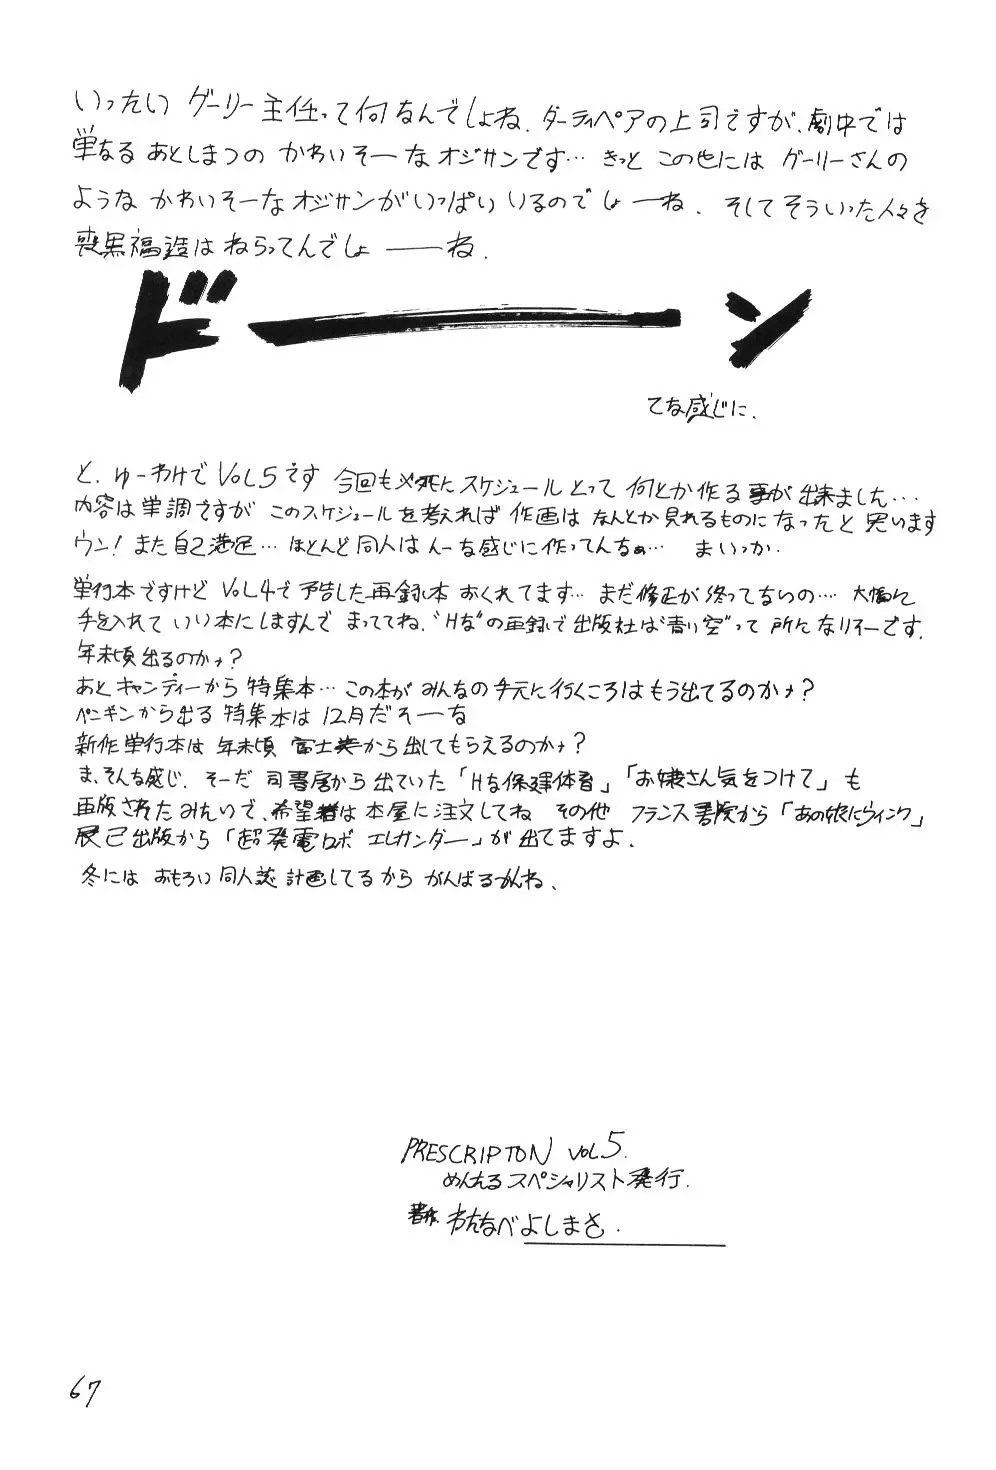 いったい グーリー主任って何なんでしょね、ダーティペアの上司ですが、劇中では
単なる あとしまつの かわいそーな オジサンです… きっと この他には グーリーさんの
ような かわいそーな オジサンが いっぱい いるのでしょーね. そして そういった人々を
喪黒福造は ねらってんでしょ ――ね.
ドーン
てな感じに.
と、ゆーわけで VOL5です 今回も必死にスケジュールとって 何とか作る事が出来ました…
内容は単調ですが このスケジュールを考えれば 作画は なんとか見れるものに なったと思います
ウン! また自己満足… ほとんど同人は んーな感じに作ってんなぁ… まいっか.
単行本ですけど VOL4で予告した再録本 おくれてます… まだ修正が終ってないの… 大幅に
手を入れて いい本にしますんで まっててね. "Hな"の再録で出版社は"青い空"って 所になりそーです.
年末頃出るのかナ?
あと キャンディーから 特集本… この本が みんなの手元に行くころは もう出てるのかナ?
ペンギンから出る 特集本は 12月だそーな
新作単行本は 年末頃 富士美から出してもらえるのかナ?
ま、そんな感じ. そーだ 司書房から出ていた 「Hな保健体育」「お嬢さん気をつけて」も
再版されたみたいで、希望者は本屋に注文してね その他 フランス書院から「あの娘にウィンク」
辰巳出版から 「超発電ロボ エレガンダー」が出てますよ.
冬には おもろい同人誌計画してるから がんばるかんね、
PRESCRIPTON VOL5.
めんたるスペシャリスト発行.
著作. わたなべよしまさ.
67